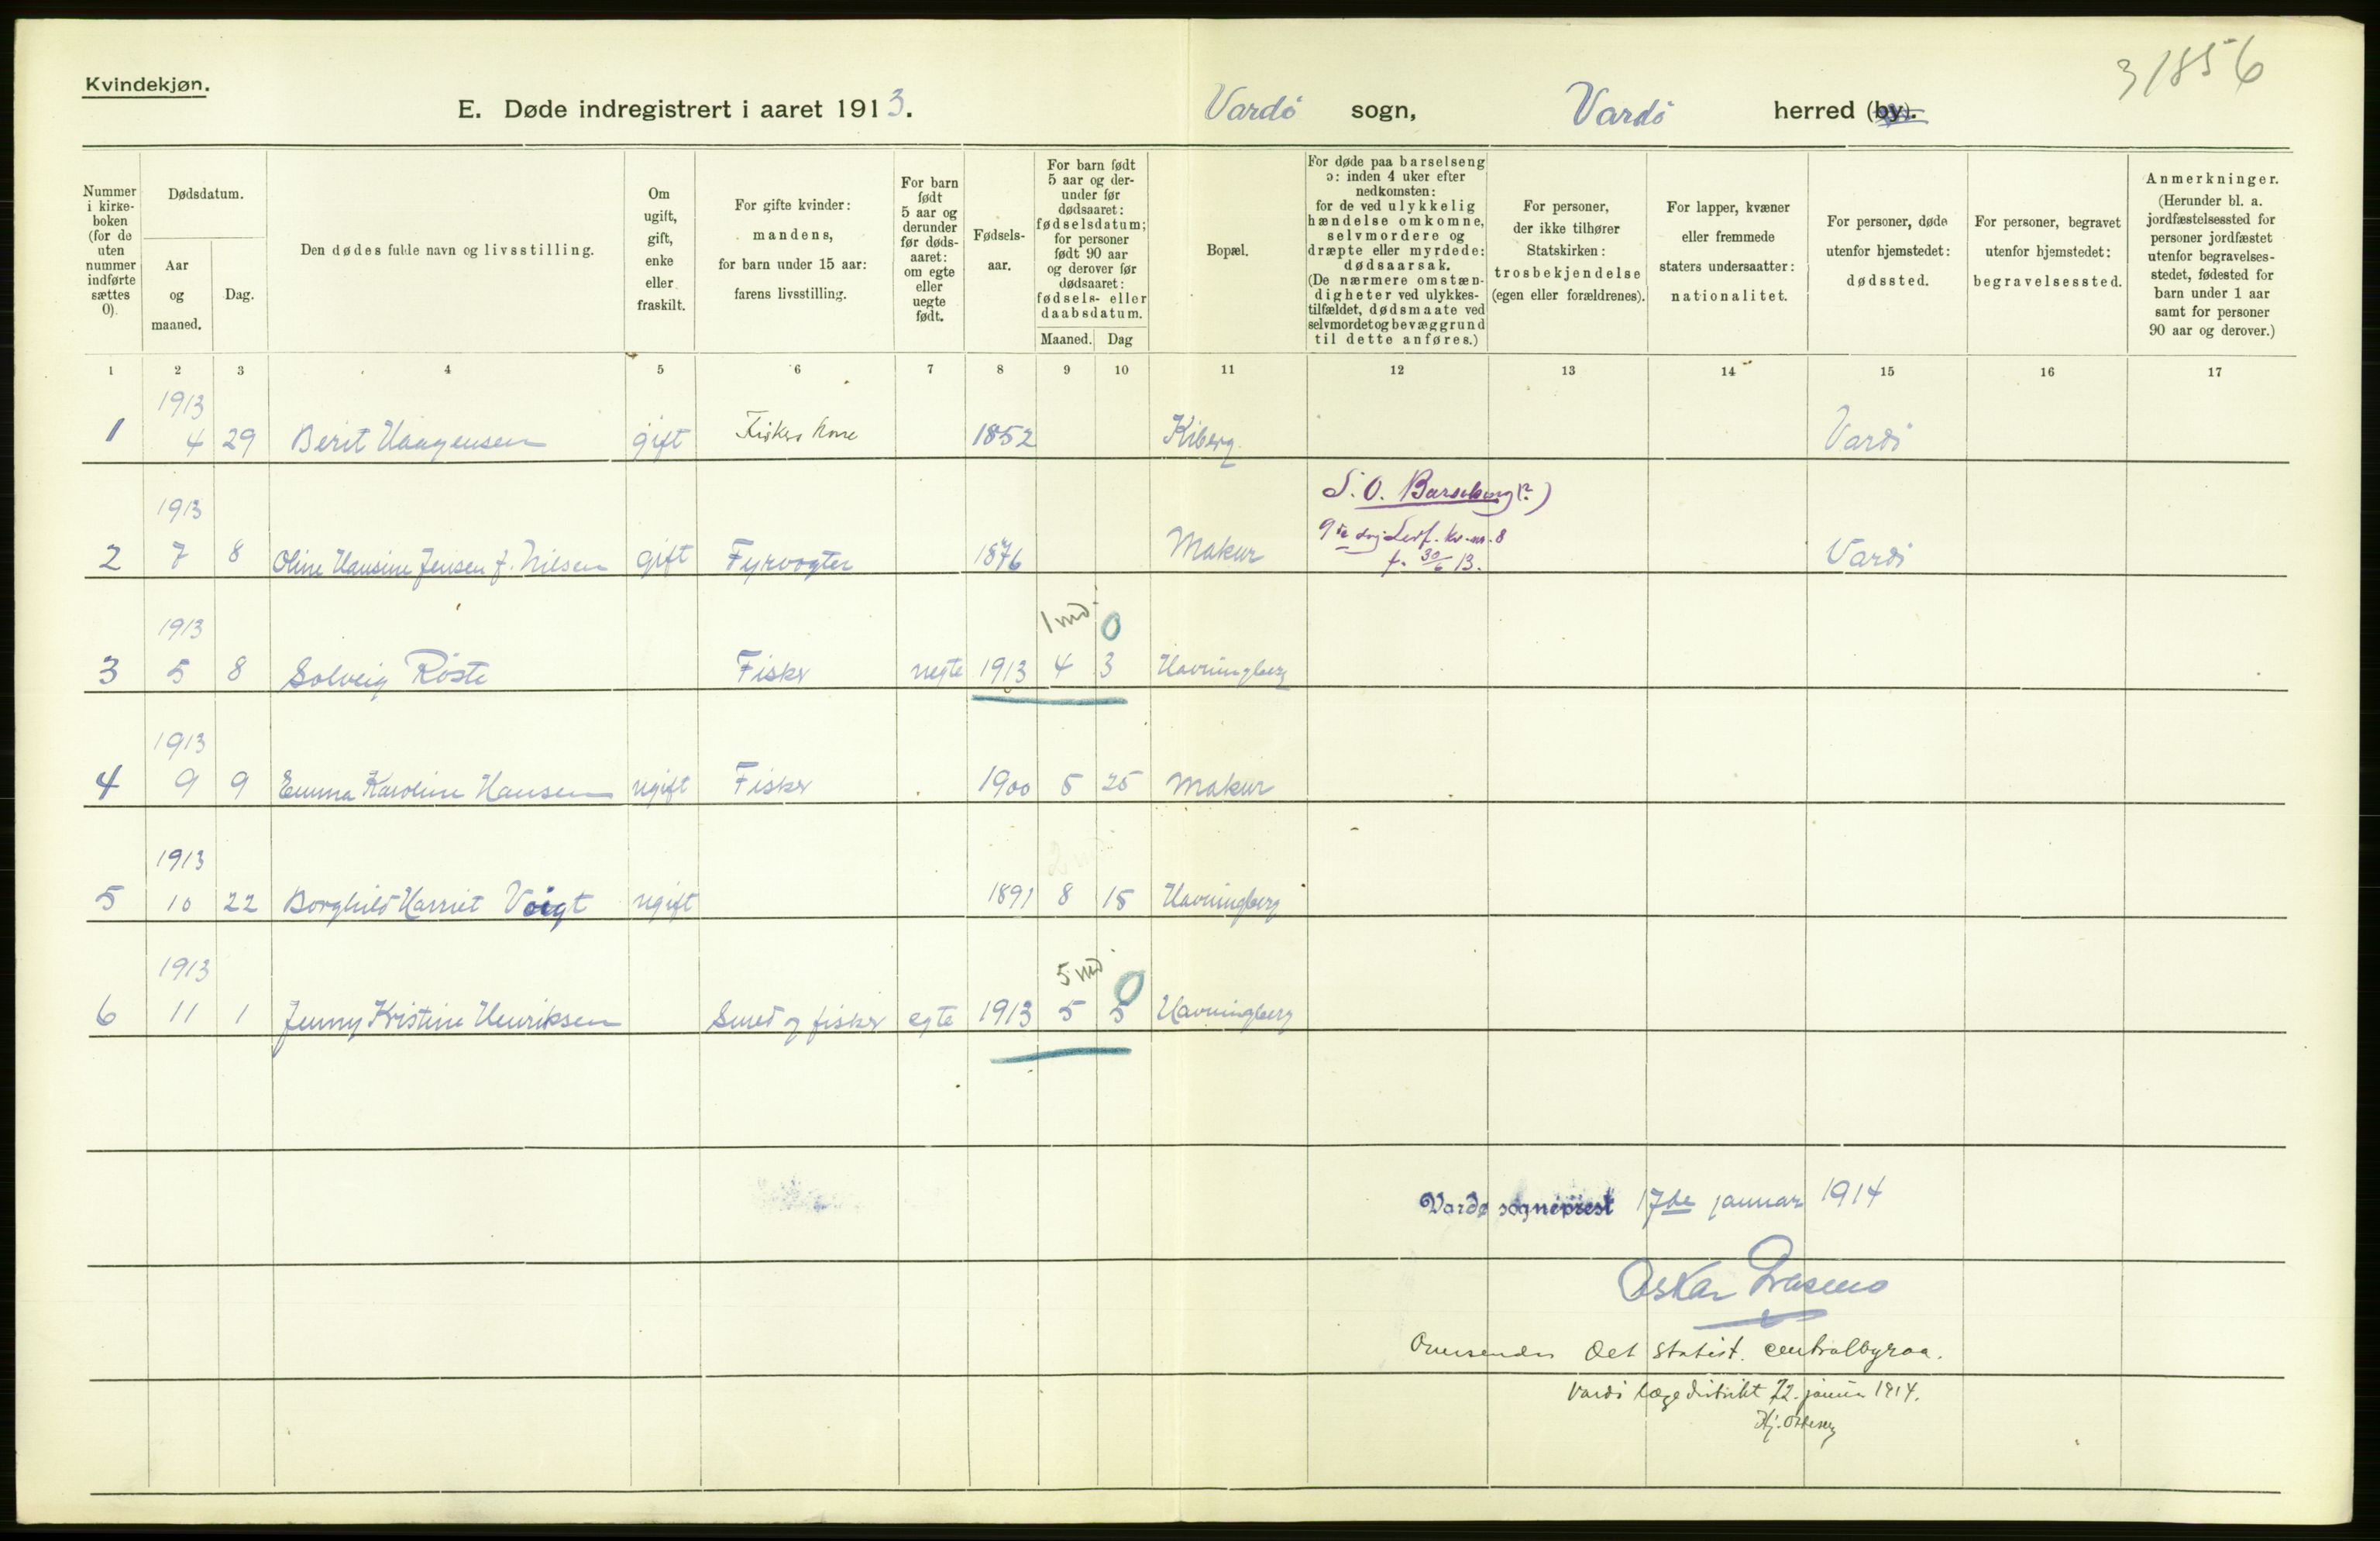 31856
Kvindekjøn.
E. Døde indregistrert i aaret 1913. Vardö sogn, Vardö herred (by).
Nummer i kirke-boken (for de uten nummer indførte sættes 0).
Dødsdatum.
Aar og maaned.
Dag.
Den dødes fulde navn og livsstilling.
Om ugift, gift, enke eller fraskilt.
For gifte kvinder: mandens, for barn under 15 aar: farens livsstilling.
For barn født 5 aar og derunder før døds-aaret: om egte eller uegte født.
Fødsels-aar.
For barn født 5 aar og der-under før dødsaaret: fødselsdatum; for personer født 90 aar og derover før dødsaaret: fødsels- eller daabsdatum.
Maaned. Dag
Bopæl.
For døde paa barselseng ɔ: inden 4 uker efter nedkomsten: for de ved ulykkelig hændelse omkomne, selvmordere og dræpte eller myrdede: dødsaarsak. (De nærmere omstæn-digheter ved ulykkes-tilfældet, dødsmaate ved selvmordet og bevæggrund til dette anføres.)
For personer, der ikke tilhører Statskirken: trosbekjendelse (egen eller forældrenes).
For lapper, kvæner eller fremmede staters undersaatter: nationalitet.
For personer, døde utenfor hjemstedet: dødssted.
For personer, begravet utenfor hjemstedet: begravelsessted.
Anmerkninger. (Herunder bl. a. jordfæstelsessted for personer jordfæstet utenfor begravelses-stedet, fødested for barn under 1 aar samt for personer 90 aar og derover.)
1 2 3 4 5 6 7 8 9 10 11 12 13 14 15 16 17
1913
1 4 29 Berit Haagensen gift Fiskers kone 1852 Kiberg Vardö
S. O. Barselseng (?)
1913 9de dag Levf. kv. nr. 8
2 7 8 Oline Hansine Jensen f. Nilsen gift Fyrvogter 1876 Makur f. 30/6 13. Vardö
1913 1 md. 0
3 5 8 Solveig Röste Fisker uegte 1913 4 3 Havningberg
1913
4 9 9 Emma Karoline Hansen ugift Fisker 1900 5 25 Makur
1913 2 md.
5 10 22 Borghild Harriet Voigt ugift 1891 8 15 Havningberg
1913 5 md 0
6 11 1 Jenny Kristine Henriksen Smed og fisker egte 1913 5 5 Havningberg
Vardø sogneprest 17de januar 1914
Oskar
Oversendes Det statist. centralbyraa.
Vardö lægedistrikt 22. januar 1914.
Hj.